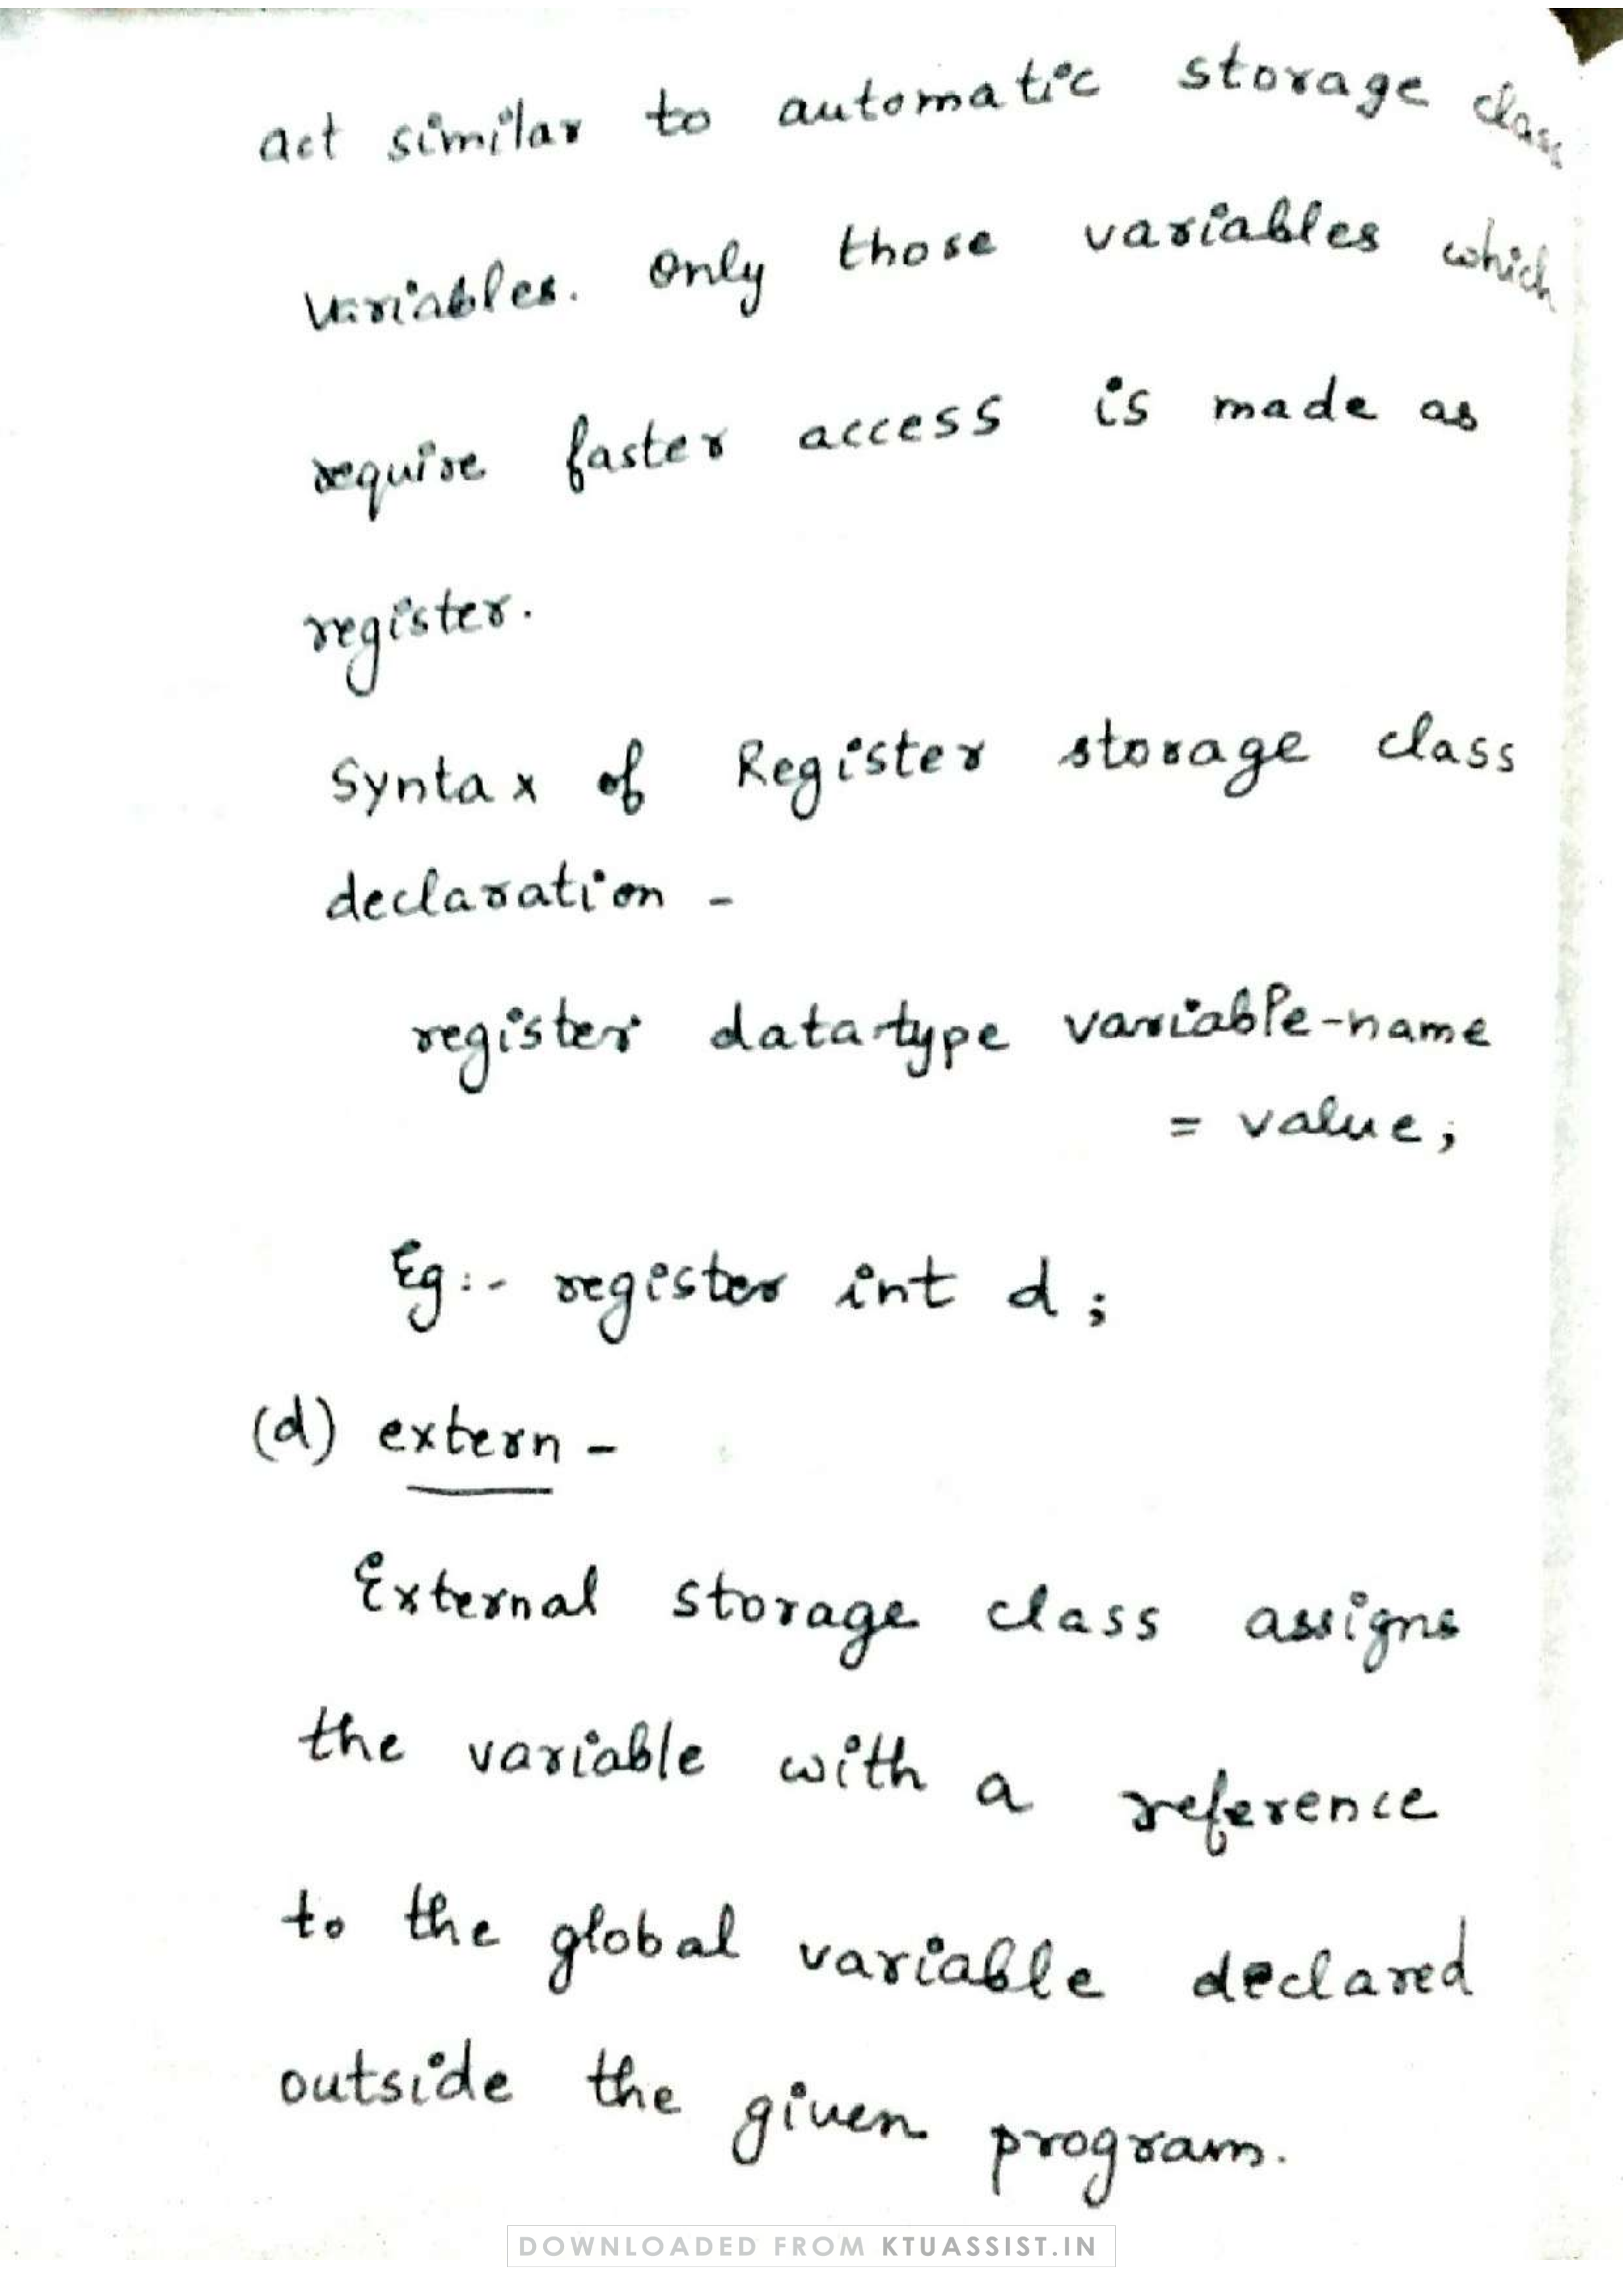 act similar to automatic storage class
variables. Only those variables which
require faster access is made as
register.
Syntax of Register storage class
declaration -
register datatype variable-name
= value;
Eg:- register int d;
(d) extern -
External storage class assigns
the variable with a reference
to the global variable declared
outside the given program.
DOWNLOADED FROM KTUASSIST.IN